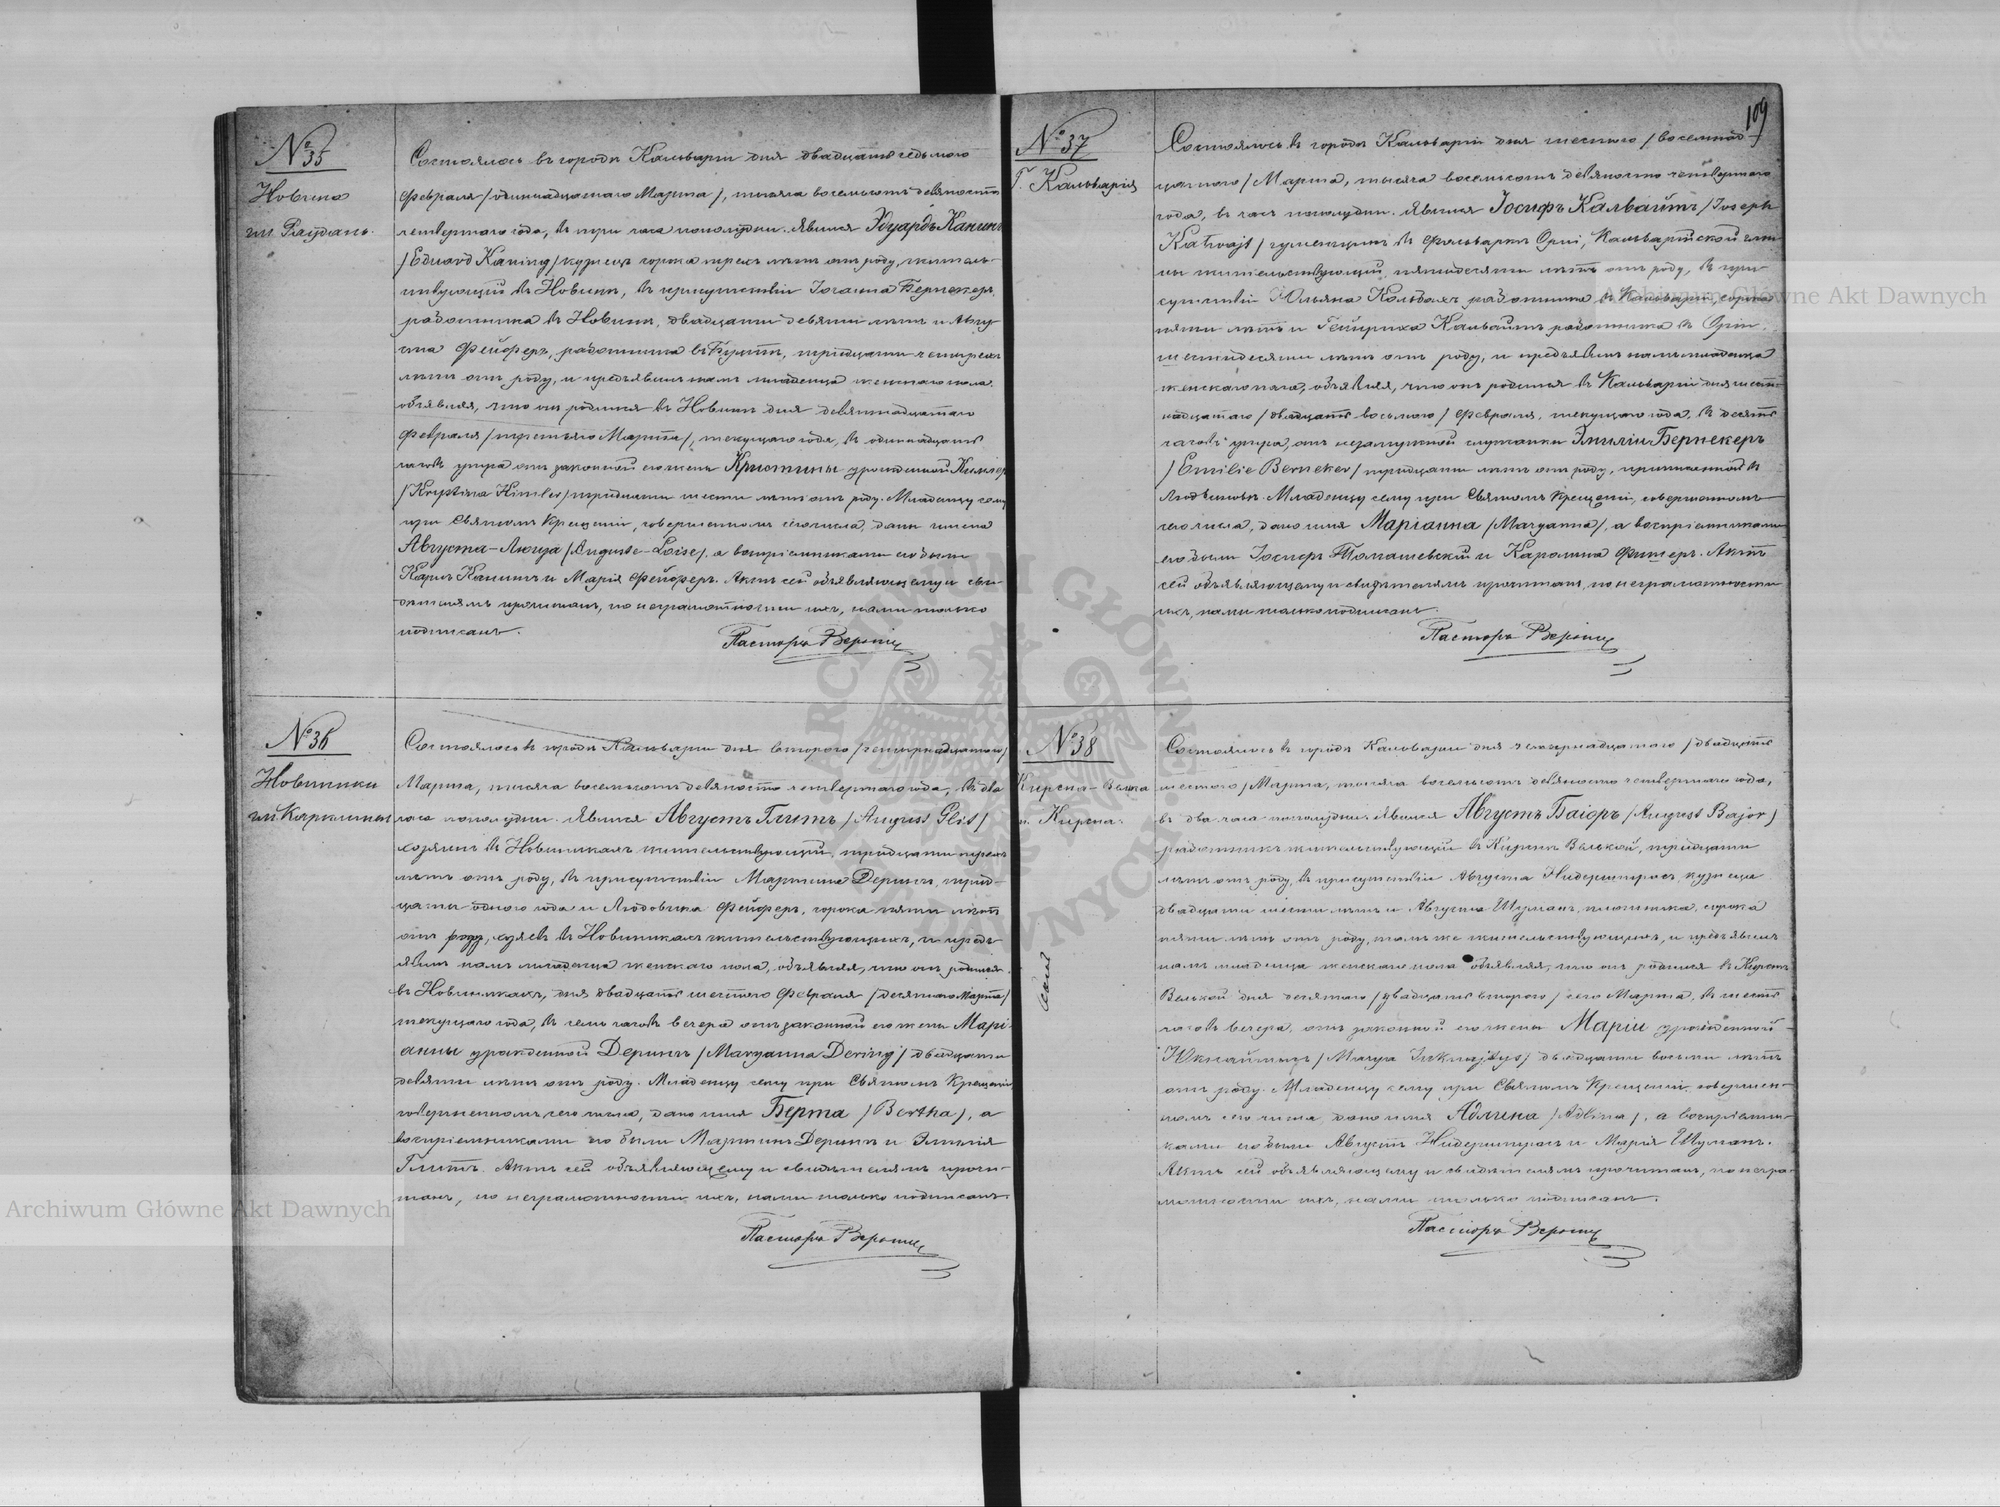 № 35
Новина
гм. Раудань.
Состоялось въ городѣ Кальваріи дня двадцать седьмого
Февраля /одиннадцатаго Марта/, тысяча восемьсотъ девяносто
четвертаго года, въ три часа пополудни. Явился Эдуардъ Канингъ
/Eduard Kaning/ кузнецъ сорока трехъ лѣтъ отъ роду, житель-
ствующій въ Новинѣ, въ присутствіи Іоганна Бернекеръ,
работника въ Новинѣ, двадцати девяти лѣтъ и Авгу
ста Фейферъ, работника въ, тридцати четырехъ
лѣтъ отъ роду, и предъявилъ намъ младенца женскаго пола,
объявляя, что онъ родился въ Новинѣ дня девятнадцатаго
Февраля /третьяго Марта/, текущаго года, въ одиннадцать
часовъ утра отъ законной его жены Кристины урожденной Кимлеръ
/Krystina Kimler/ тридцати шести лѣтъ отъ роду. Младенцу сему
при Святомъ Крещеніи, совершенномъ сего числа, даны имена
Августа-Лоиза /Auguste-Loise/, а воспріемниками его были
Карлъ Канингъ и Марія Фейферъ. Актъ сей объявляющему и сви-
дѣтелямъ прочитанъ, по неграмотности ихъ, нами только
подписанъ.
Пасторъ
№ 36
Новиники
гм. Каркліни
Состоялось въ городѣ Кальваріи дня второго /четырнадцатаго/
Марта, тысяча восемьсотъ девяносто четвертаго года, въ два
часа пополудни. Явился Августъ Глитъ /August Glit/
хозяинъ въ Новиникахъ жительствующій, тридцати трехъ
лѣтъ отъ роду, въ присутствіи Мартина Дерингъ, трид-
цати одного года и Людовика Фейферъ, сорока пяти лѣтъ
отъ роду, хозяевъ въ Новиникахъ жительствующихъ, и предъ
явилъ намъ младенца женскаго пола, объявляя, что онъ родился
въ Новиникахъ, дня двадцать шестого Февраля /десятаго Марта/
текущаго года, въ семь часовъ вечера отъ законной его жены Марі-
анны урожденной Дерингъ /Maryanna Dering/ двадцати
девяти лѣтъ отъ роду. Младенцу сему при Святомъ Крещеніи
совершенномъ сего числа, дано имя Берта /Bertha/, а
воспріемниками его были Мартинъ Дерингъ и Эмилія
Глитъ. Актъ сей объявляющему и свидѣтелямъ прочи-
танъ, по неграмотности ихъ, нами только подписанъ.
Пасторъ
109
№ 37
Г. Кальварія
Состоялось въ городѣ Кальваріи дня шестого /восемнад-
цатаго/ Марта, тысяча восемьсотъ девяносто четвертаго
года, въ часъ пополудни. Явился Іосифъ Калвайтъ /Joseph
Kalwajt/ гуменщикъ въ фольваркѣ Оріи, Кальварійской гми
ны жительствующій, пятидесяти лѣтъ отъ роду, въ при-
сутствіи Юльяна работника въ Кальваріи, сорока
пяти лѣтъ и Генриха Кальвайтъ работника въ Оріи,
шестидесяти лѣтъ отъ роду, и предъявилъ намъ младенца
женскаго пола, объявляя, что онъ родился въ Кальваріи дня шест-
надцатаго /двадцать восьмого/ Февраля, текущаго года, въ десять
часовъ утра, отъ незамужной служанки Эмиліи Бернекеръ
/Emilie Berneker/ тридцати лѣтъ отъ роду, приписанной въ
Людвиновѣ. Младенцу сему при Святомъ Крещеніи, совершенномъ
сего числа, дано имя Маріанна /Maryanna/, а воспріемниками
его были Іосифъ Томашевскій и Каролина Фишеръ. Актъ
сей объявляющему и свидѣтелямъ прочитанъ, по неграмотности
ихъ, нами только подписанъ.
Пасторъ
№ 38
Кирсна-Велька
гм. Кирсна.
Состоялось въ городѣ Кальваріи дня четырнадцатаго /двадцать
шестого/ Марта, тысяча восемьсотъ девяносто четвертаго года,
въ два часа пополудни. Явился Августъ Баіоръ /August Bajor/
работникъ жительствующій въ Кирснѣ Велькой, тридцати
лѣтъ отъ роду, въ присутствіи Августа Нидерштрасъ, кузнеца
двадцати шести лѣтъ и Августа Шуманъ, плотника, сорока
пяти лѣтъ отъ роду, тамъ же жительствующихъ, и предъявилъ
намъ младенца женскаго пола объявляя, что онъ родился въ Кирснѣ
Велькой дня десятаго /двадцать второго/ сего Марта, въ шесть
часовъ вечера, отъ законной его жены Маріи урожденной
Юкнайтысъ /Marya Juknajtys/ двадцати восьми лѣтъ
отъ роду. Младенцу сему при Святомъ Крещеніи, совершен-
номъ сего числа, дано имя Адлина /Adlina/, а воспріемни-
ками его были Августъ Нидерштрасъ и Марія Шуманъ.
Актъ сей объявляющему и свидѣтелямъ прочитанъ, по негра-
мотности ихъ, нами только подписанъ.
Пасторъ
Archiwum Główne Akt Dawnych
Archiwum Główne Akt Dawnych
ARCHIWUM GŁÓWNE AKT DAWNYCH